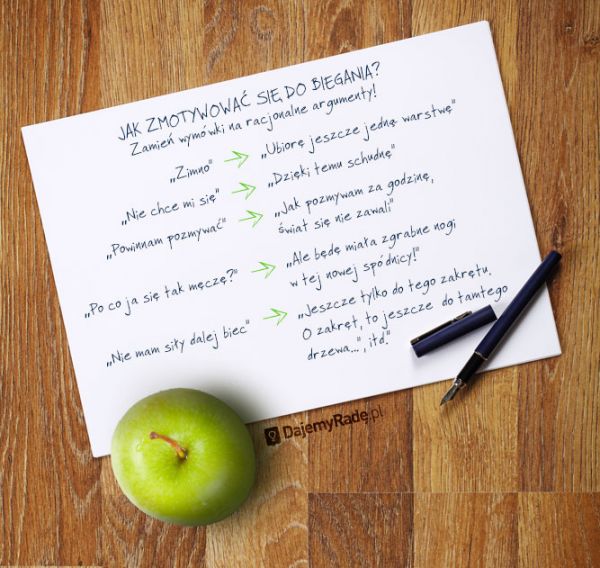 JAK ZMOTYWOWAĆ SIĘ DO BIEGANIA?
Zamień wymówki na racjonalne argumenty!
„Zimno" → „Ubiorę jeszcze jedną warstwę"
„Nie chce mi się" → „Dzięki temu schudnę"
„Powinnam pozmywać" → „Jak pozmywam za godzinę,
świat się nie zawali"
„Po co ja się tak męczę?" → „Ale będę miała zgrabne nogi
w tej nowej spódnicy!"
„Nie mam siły dalej biec" → „Jeszcze tylko do tego zakrętu.
O zakręt, to jeszcze do tamtego
drzewa...", itd."
DajemyRadę.pl